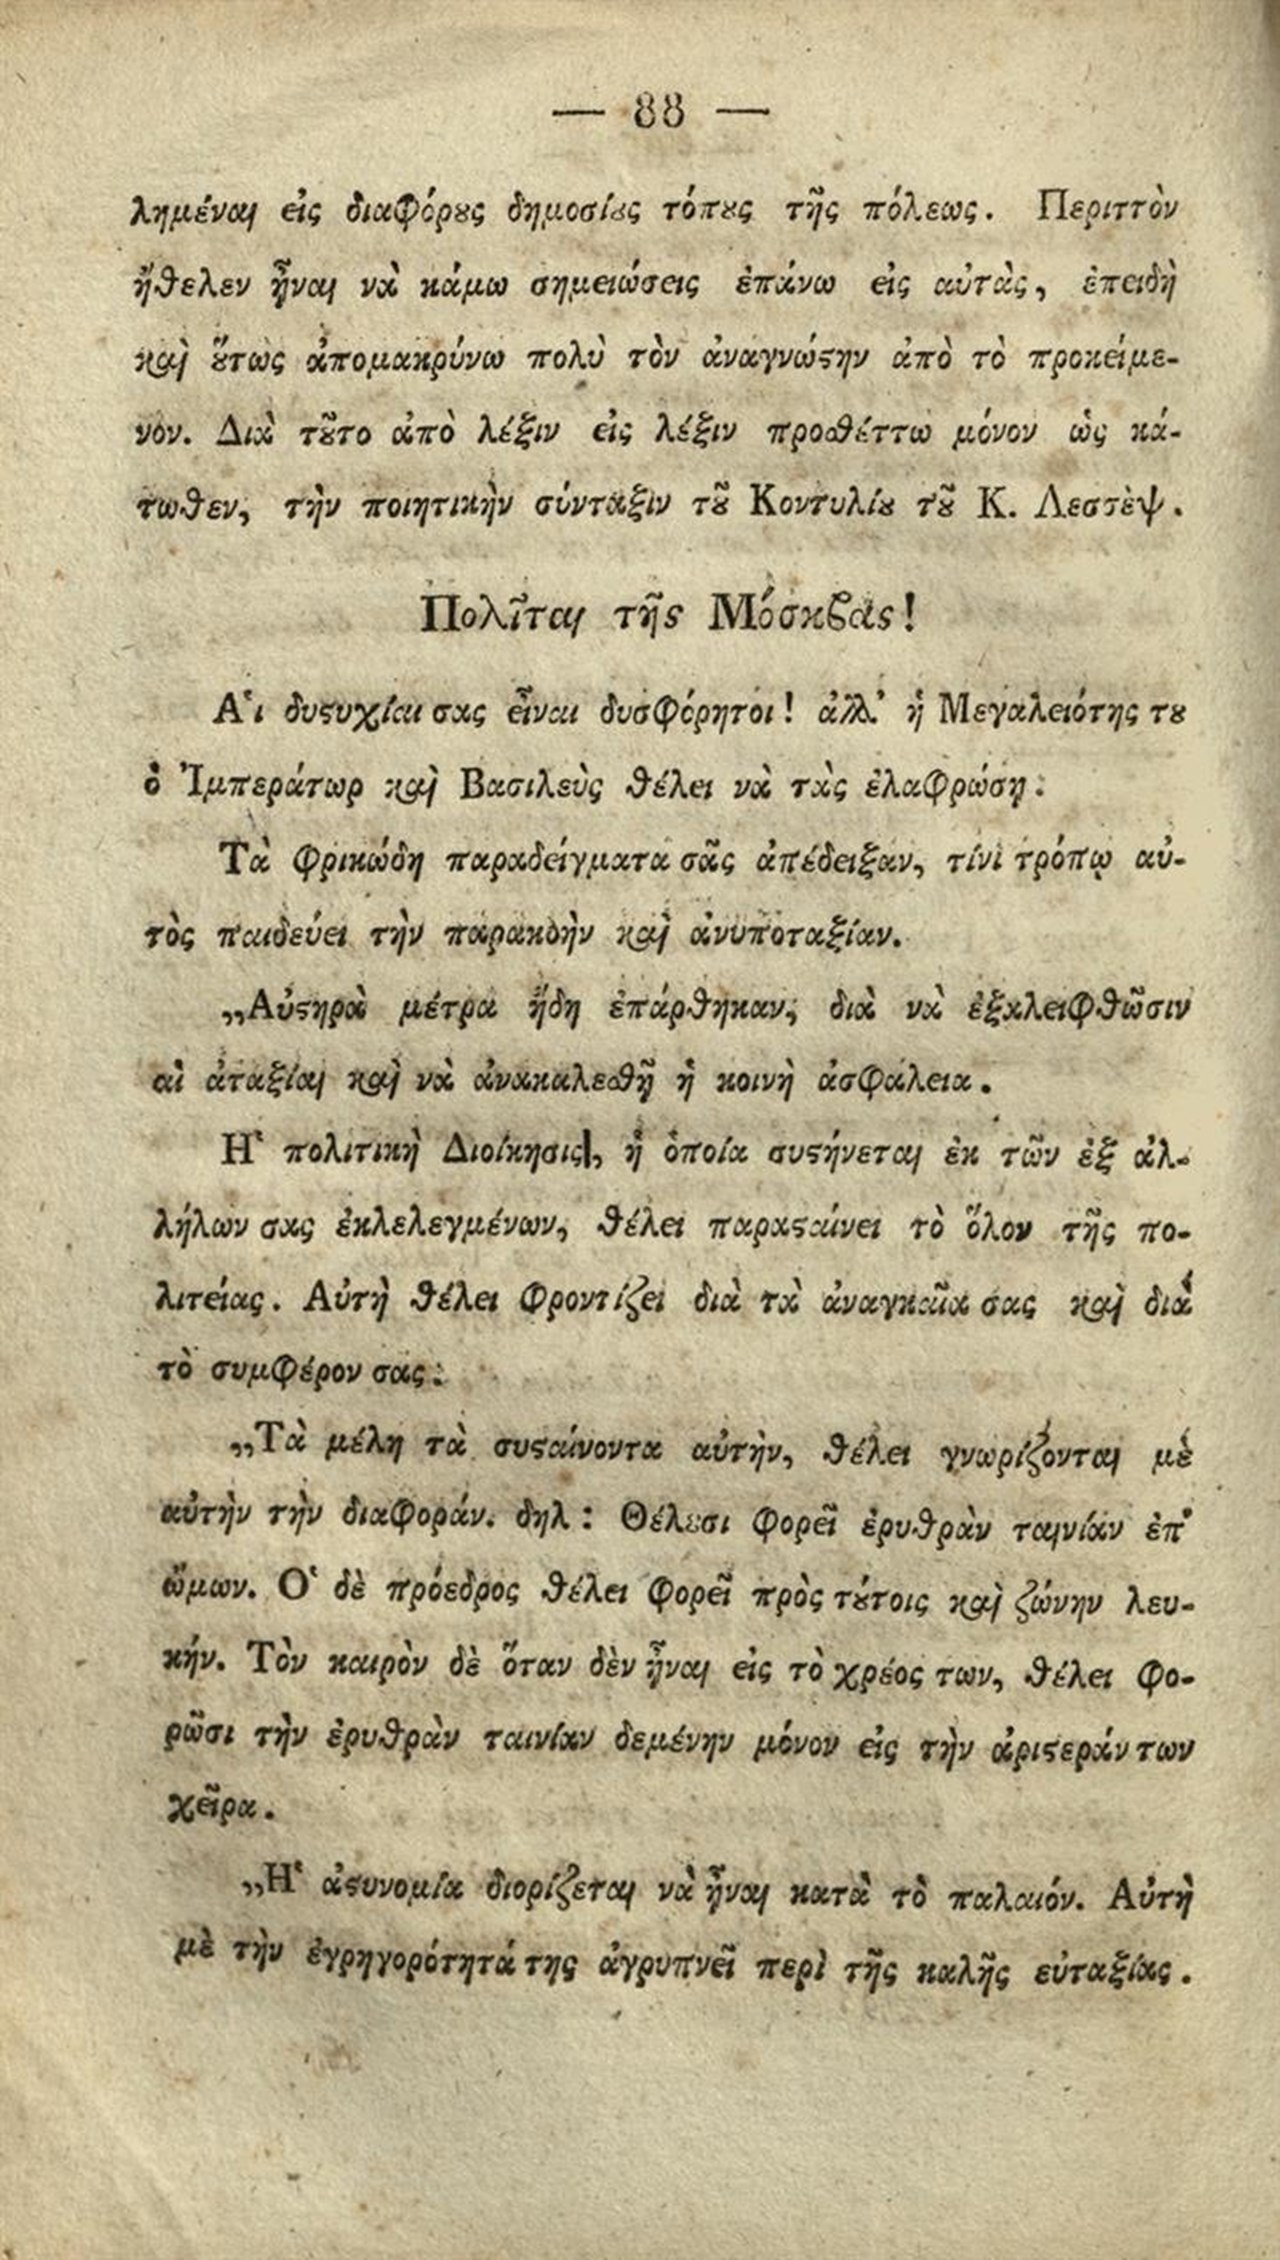 — 88 —
λημέναι εἰς διαφόρȣς δημοσίȣς τόπȣς τῆς πόλεως. Περιττὸν
ἤθελεν ἦναι νὰ κάμω σημειώσεις ἐπάνω εἰς αὐτὰς, ἐπειδὴ
καὶ ȣ̔́τως ἀπομακρύνω πολὺ τὸν ἀναγνώϛην ἀπὸ τὸ προκείμε-
νον. Διὰ τȣ͂το ἀπὸ λέξιν εἰς λέξιν προσθέττω μόνον ὡς κά-
τωθεν, τὴν ποιητικὴν σύνταξιν τȣ͂ Κοντυλίȣ τȣ͂ Κ. Λεσσὲψ.
Πολῖται τῆς Μόσκβας!
Αἱ δυϛυχίαι σας εἶναι δυσφόρητοι! ἀλλ' ἡ Μεγαλειότης τȣ
ὁ Ἰμπεράτωρ καὶ Βασιλεὺς θέλει νὰ τὰς ἐλαφρώσῃ:
Τὰ φρικώδη παραδείγματα σᾶς ἀπέδειξαν, τίνι τρόπῳ αὐ-
τὸς παιδεύει τὴν παρακοὴν καὶ ἀνυποταξίαν.
„Αὐϛηρὰ μέτρα ἤδη ἐπάρθηκαν, διὰ νὰ ἐξαλειφθῶσιν
αἱ ἀταξίαι καὶ νὰ ἀνακαλεσθῇ ἡ κοινὴ ἀσφάλεια.
Ἡ πολιτικὴ Διοίκησις, ἡ ὁποία συϛήνεται ἐκ τῶν ἐξ ἀλ-
λήλων σας ἐκλελεγμένων, θέλει παραϛαίνει τὸ ὅλον τῆς πο-
λιτείας. Αὐτὴ θέλει φροντίζει διὰ τὰ ἀναγκαῖα σας καὶ διὰ
τὸ συμφέρον σας:
„Τὰ μέλη τὰ συϛαίνοντα αὐτὴν, θέλει γνωρίζονται μὲ
αὐτὴν τὴν διαφοράν. δηλ: Θέλȣσι φορεῖ ἐρυθρὰν ταινίαν ἐπ'
ὤμων. Ὁ δὲ πρόεδρος θέλει φορεῖ πρὸς τȣ́τοις καὶ ζώνην λευ-
κήν. Τὸν καιρὸν δὲ ὅταν δὲν ἦναι εἰς τὸ χρέος των, θέλει φο-
ρῶσι τὴν ἐρυθρὰν ταινίαν δεμένην μόνον εἰς τὴν ἀριϛεράν των
χεῖρα.
„Ἡ ἀϛυνομία διορίζεται νὰ ἦναι κατὰ τὸ παλαιόν. Αὐτὴ
μὲ τὴν ἐγρηγορότητά της ἀγρυπνεῖ περὶ τῆς καλῆς εὐταξίας.